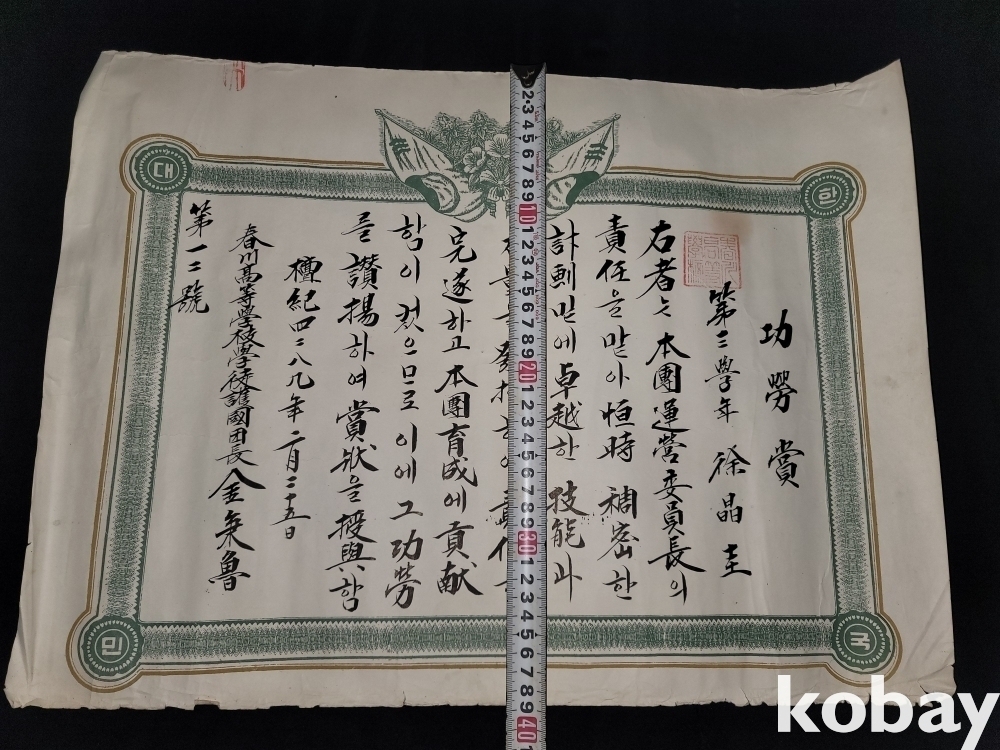 功勞賞
第三學年 徐晶圭
右者는 本團運營委員長의
責任을 맡아 恒時 稠密한
計劃밑에 卓越한 技能과
完遂하고 本團育成에 貢献
함이 컸으므로 이에 그 功勞
를 讃揚하여 賞狀을 授與함
檀紀四二八九年 二月二十五日
春川高等學校學徒護國団長 金
第一二號
대 한 민 국
kobay